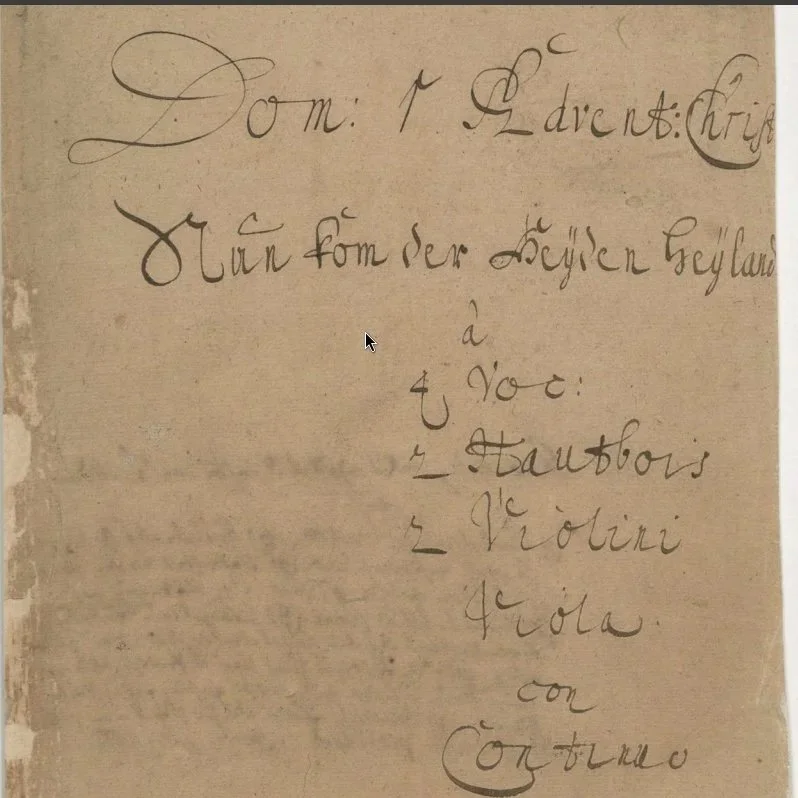 Dom: 1 Advent: Christ
Nun kom der Heyden Heyland
à
4 Voc:
2 Hautbois
2 Violini
Viola
con
Continuo